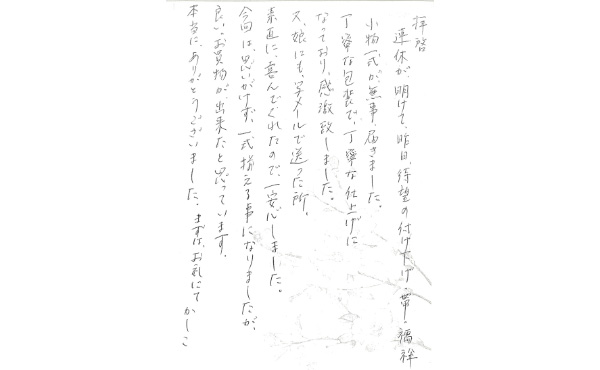 拝啓
連休が明けて、昨日、待望の付け下げ・帯・襦袢
小物一式が無事、届きました。
丁寧な包装で、丁寧な仕上げに
なっており、感激致しました。
娘にも、写メイルで送った所、
素直に、喜んでくれたので、一安心しました。
今回は、思いがけず、一式揃える事になりましたが、
良い、お買物が、出来たと思っています。
本当に、ありがとうございました。まずは、お礼にて かしこ